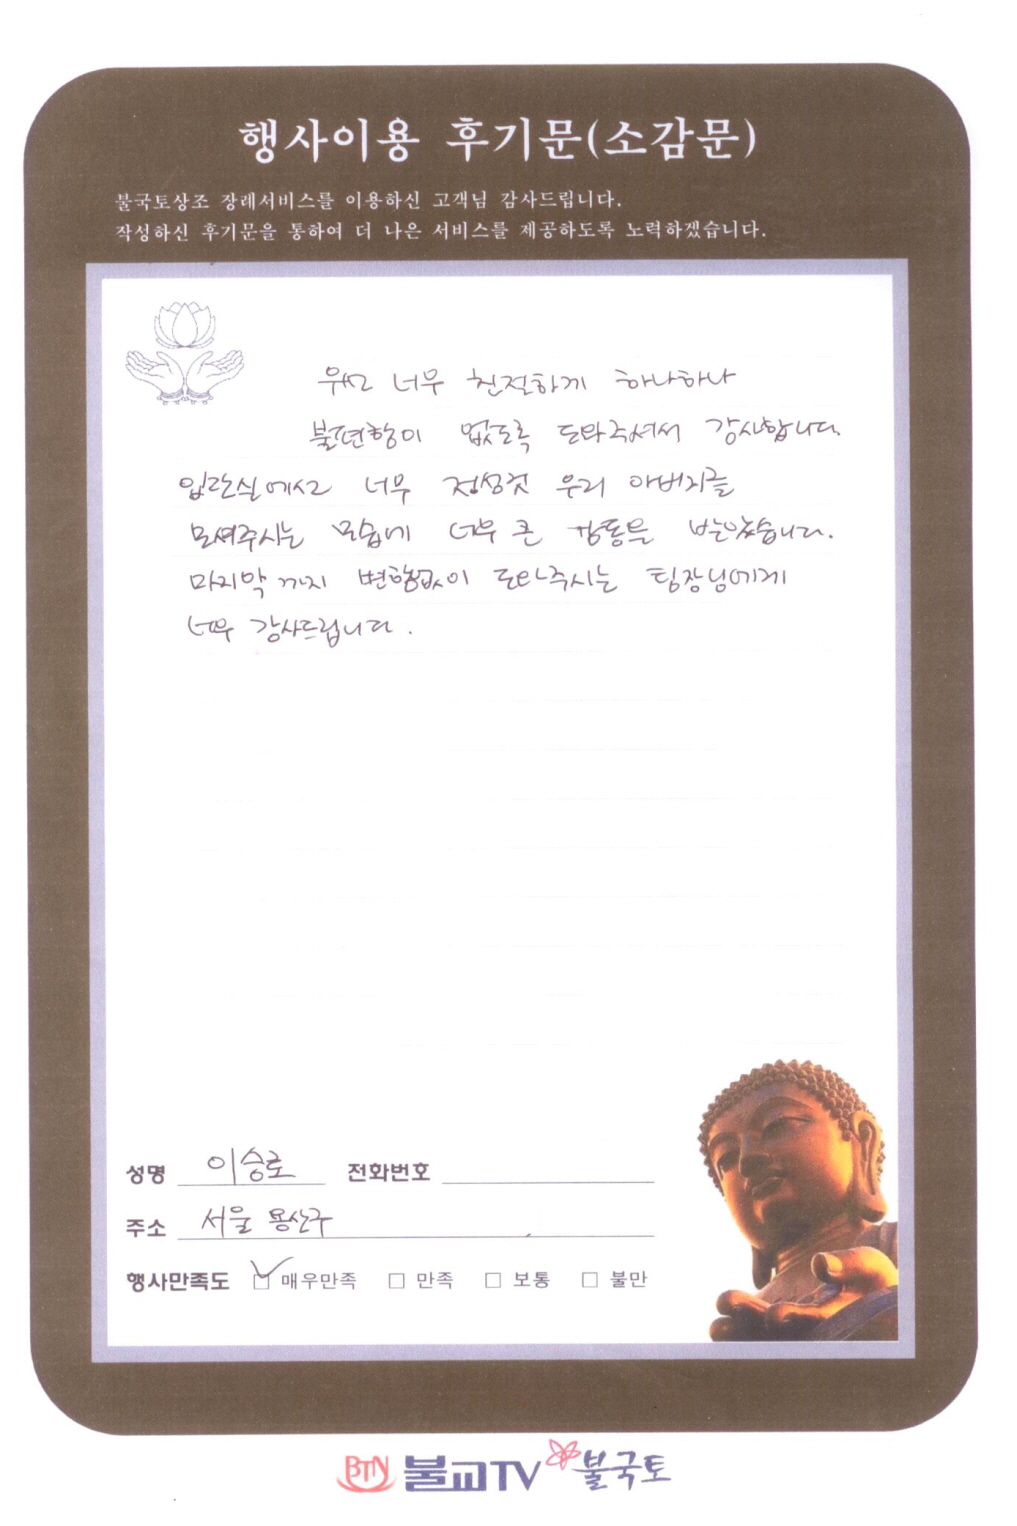 행사이용 후기문(소감문)
불국토상조 장례서비스를 이용하신 고객님 감사드립니다.
작성하신 후기문을 통하여 더 나은 서비스를 제공하도록 노력하겠습니다.
우선 너무 친절하게 하나하나
불편함이 없도록 도와주셔서 감사합니다.
입관실에서 너무 정성껏 우리 아버지를
모셔주시는 모습에 너무 큰 감동을 받았습니다.
마지막까지 변함없이 도와주시는 팀장님에게
너무 감사드립니다.
성명 이승로 전화번호
주소 서울 용산구
행사만족도 ☑ 매우만족 □ 만족 □ 보통 □ 불만
BTN 불교TV 불국토